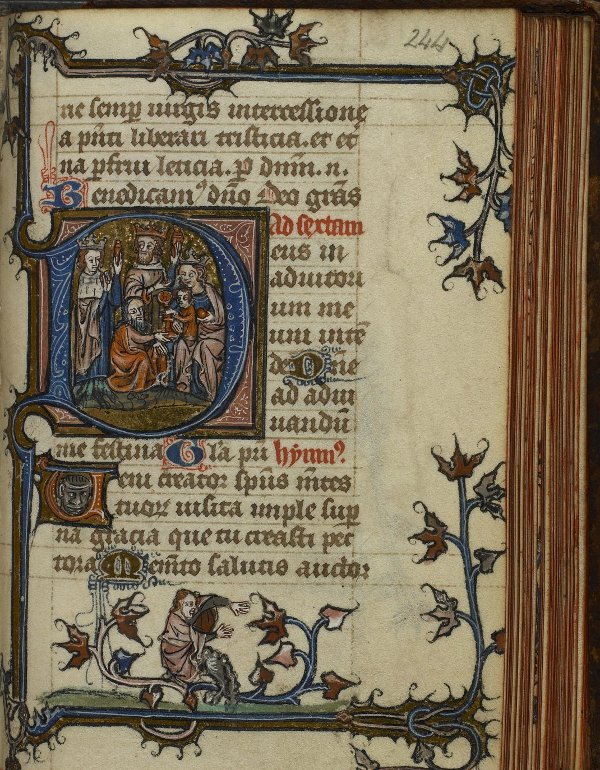 244
ne semp uirgis intercessione
a pñti liberari tristicia. et et
na pfrui leticia. p dnm̄. n.
Benedicam⁹ dño Deo grãs
Ad sextam
Deus in
adiutori
um me
um intẽ
de Dñe
ad adiu
uandũ
me festina Gla pri hỹmn⁹.
Ueni creator spũs mẽtes
tuorᷣ uisita imple sup
na gracia que tu creasti pec
tora Memẽto salutis auctor